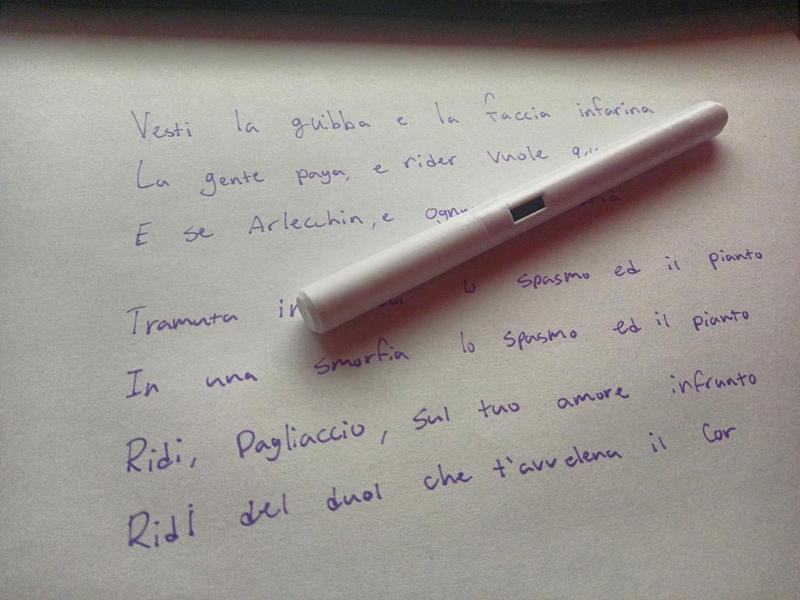 Vesti la guibba e la faccia infarina
La gente paga, e rider vuole
E se Arlecchin, e
Tramuta lo spasmo ed il pianto
In una smorfia lo spasmo ed il pianto
Ridi, Pagliaccio, sul tuo amore infrunto
Ridi del duol che t'avvelena il Cor